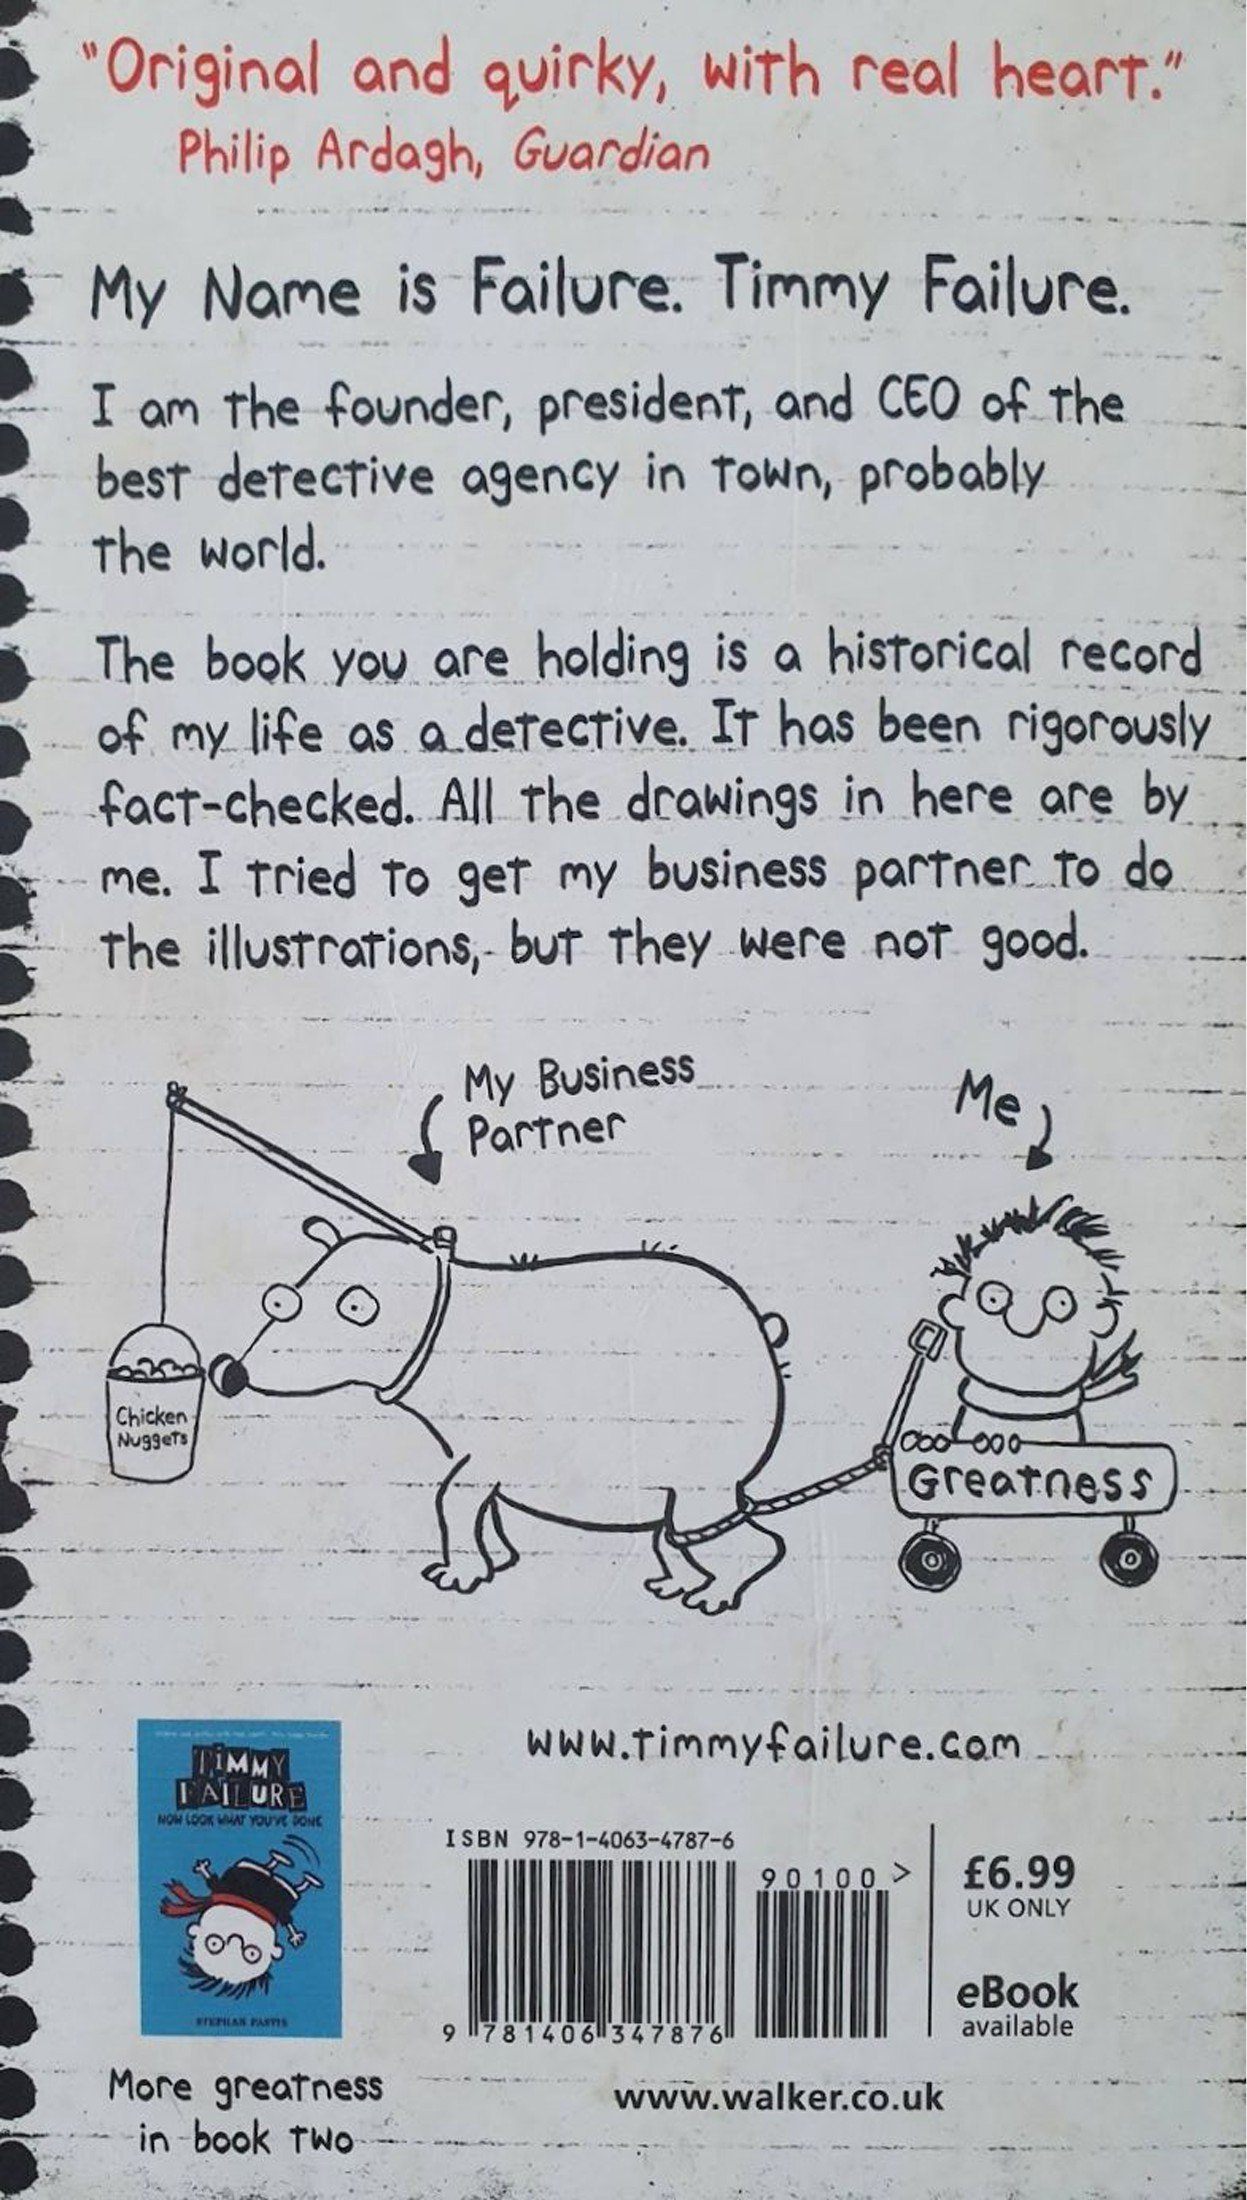 "Original and quirky, with real heart."
Philip Ardagh, Guardian
My Name is Failure. Timmy Failure.
I am the founder, president, and CEO of the
best detective agency in town, probably
the world.
The book you are holding is a historical record
of my life as a detective. It has been rigorously
fact-checked. All the drawings in here are by
me. I tried to get my business partner to do
the illustrations, but they were not good.
My Business
Partner
Me
Chicken
Nuggets
Greatness
www.timmyfailure.com
TIMMY
FAILURE
NOW LOOK WHAT YOU'VE DONE
STEPHAN PASTIS
More greatness
in book two
ISBN 978-1-4063-4787-6
90100>
9 781406 347876
£6.99
UK ONLY
eBook
available
www.walker.co.uk